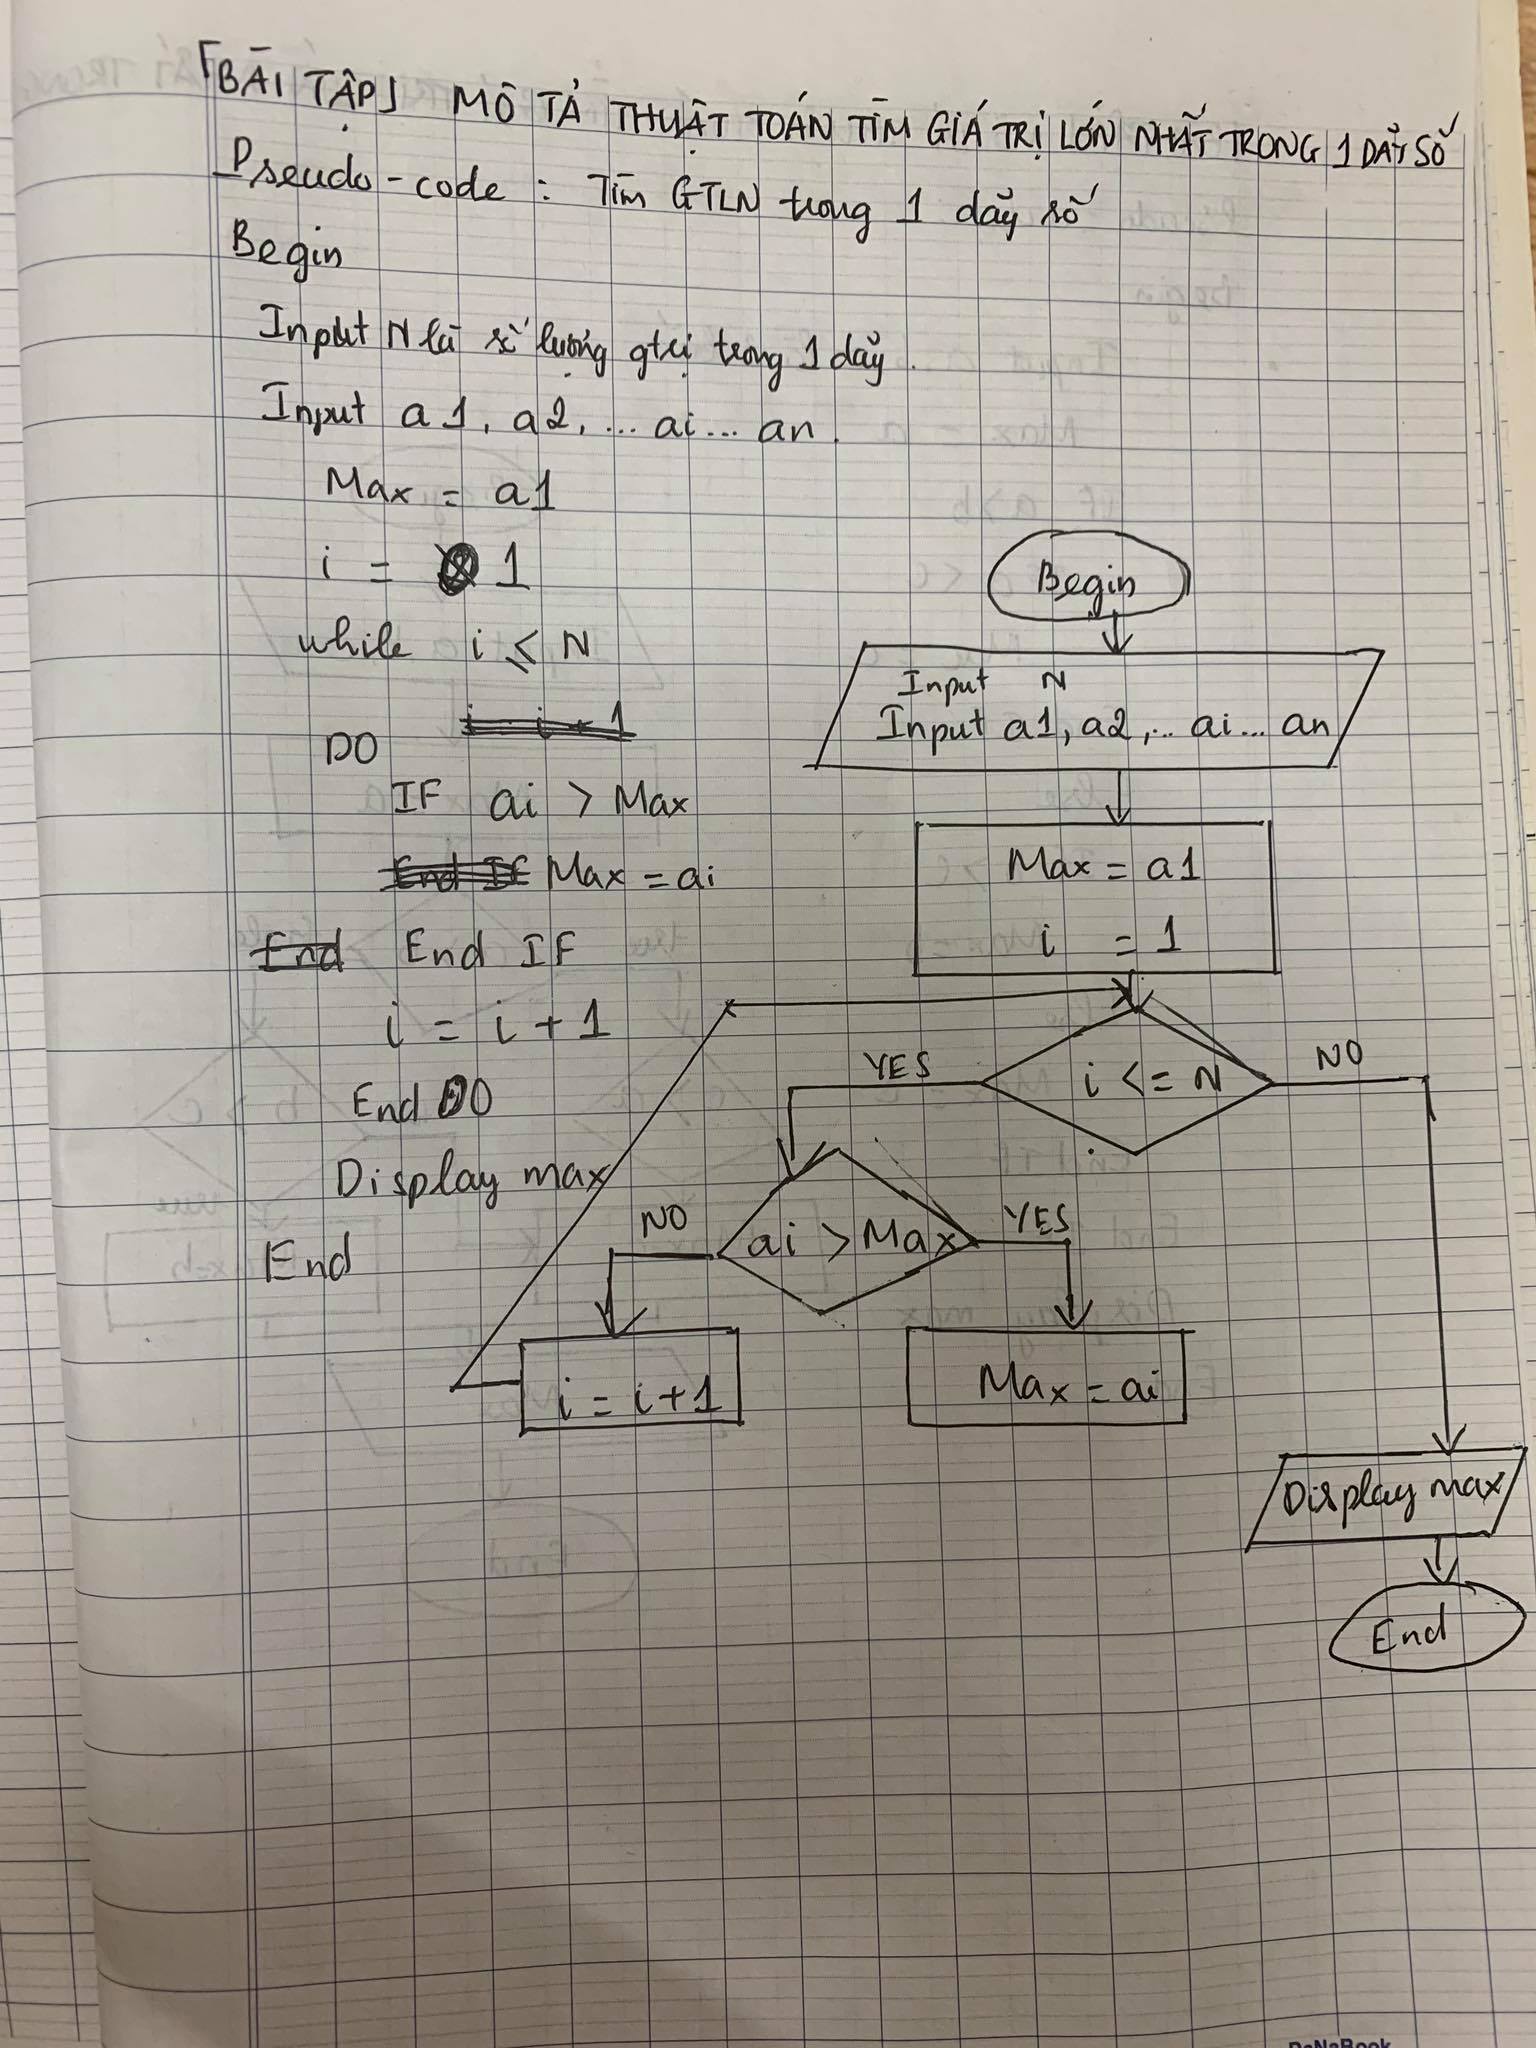 「BÀI TẬP」 MÔ TẢ THUẬT TOÁN TÌM GIÁ TRỊ LỚN NHẤT TRONG 1 DÃY SỐ
Pseudo-code : Tìm GTLN trong 1 dãy số
Begin
Input N là số lượng gtrị trong 1 dãy.
Input a1, a2, ... ai... an.
Max = a1
i = 1
while i ≤ N
DO
IF ai > Max
End IF Max = ai
End End IF
i = i + 1
End DO
Display max
End
Begin
Input N
Input a1, a2,... ai... an
Max = a1
i = 1
i <= N
YES
NO
ai > Max
NO
YES
i = i+1
Max = ai
Display max
End